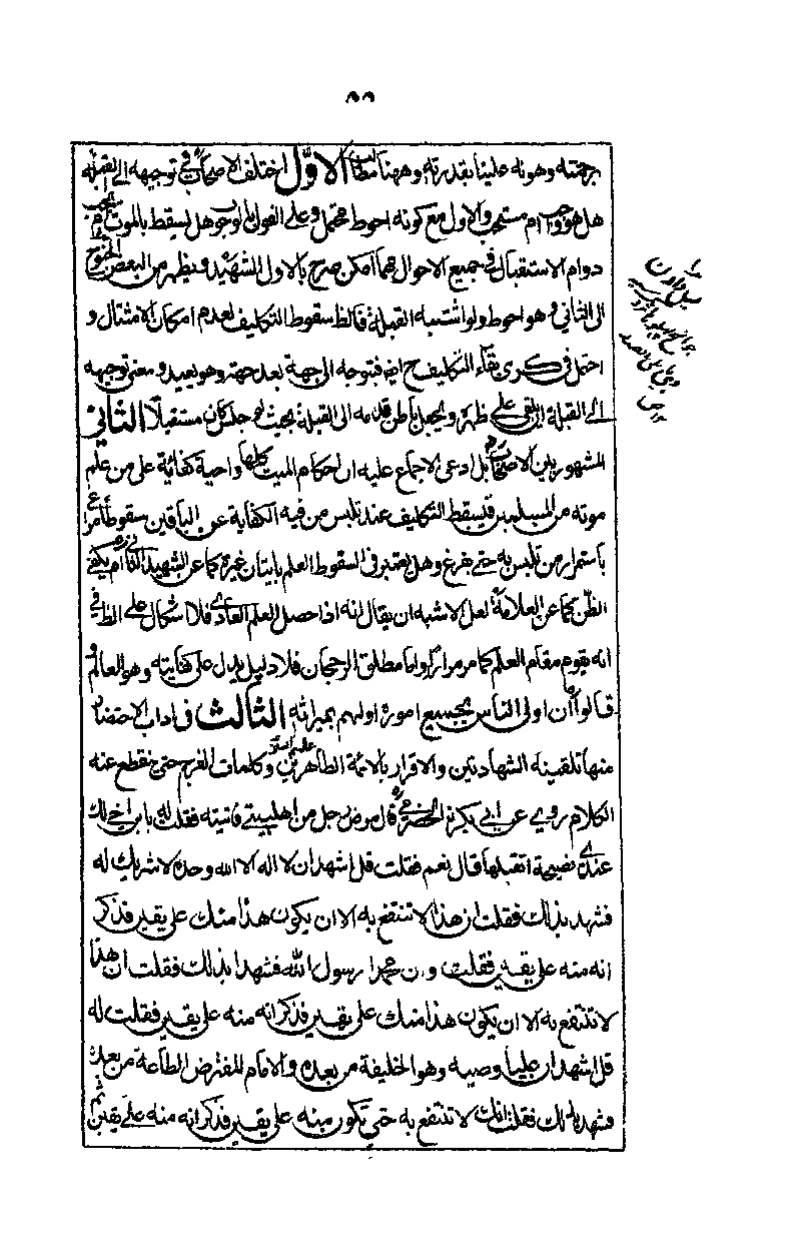 ٨٨
برحمته وهونه علينا بقدرته وههنا مطالب الاول اختلف الاصحاب في توجيهه الى القبلة
هل هو واجب ام مستحب والاول مع كونه احوط محتمل وعلى القول بالوجوب هل يسقط بالموت ام يجب
دوام الاستقبال في جميع الاحوال مهما امكن صرح بالاول الشهيد ويظهر من البعض الجنوح
الى الثاني وهو احوط ولو اشتبه القبلة فالظ سقوط التكليف لعدم امكان الامتثال و
احتمل في كرى بقاء التكليف ح ايض فتوجه الى جهة بعد جهة وهو بعيد ومعنى توجيهه
الى القبلة ان يلقى على ظهره ويجعل باطن قدمه الى القبلة بحيث لو جلس كان مستقبلا الثاني
المشهور بين الاصحاب بل ادعى الاجماع عليه ان احكام الميت كلها واجبة كفائية على من علم
موته من المسلمين فيسقط التكليف عند تلبس من فيه الكفاية عن الباقين سقوطا مراعى
باستمرار من تلبس به حتى يفرغ وهل يعتبر في السقوط العلم باتيان غيره كما عن الشهيد الثاني ام يكفي
الظن كما عن العلامة لعل الاشبه ان يقال انه اذا حصل العلم العادي فلا اشكال على الظ في
انه يقوم مقام العلم كما مر مرارا واما مطلق الرجحان فلا دليل يدل على كفايته وهو العالم و
قالوا ان اولى الناس بجميع اموره اولهم بميراثه الثالث في اداب الاحتضار
منها تلقينه الشهادتين والاقرار بالائمة الطاهرين وكلمات الفرج حتى ينقطع عنه
الكلام روي عن ابي بكر الحضرمي قال مرض رجل من اهل بيتي فاتيته فقلت له يا بن اخي لك
عندي نصيحة اتقبلها قال نعم فقلت قل اشهد ان لا اله الا الله وحده لا شريك له
فشهد بذلك فقلت ان هذا لا تنتفع به الا ان يكون هذا منك على يقين فذكر
انه منه على يقين فقلت وان محمدا رسول الله فشهد بذلك فقلت ان هذا
لا تنتفع به الا ان يكون هذا منك على يقين فذكر انه منه على يقين فقلت له
قل اشهد ان عليا وصيه وهو الخليفة من بعده والامام المفترض الطاعة من بعده
فشهد بذلك فقلت انك لا تنتفع به حتى تكون منه على يقين فذكر انه منه على يقين ثم